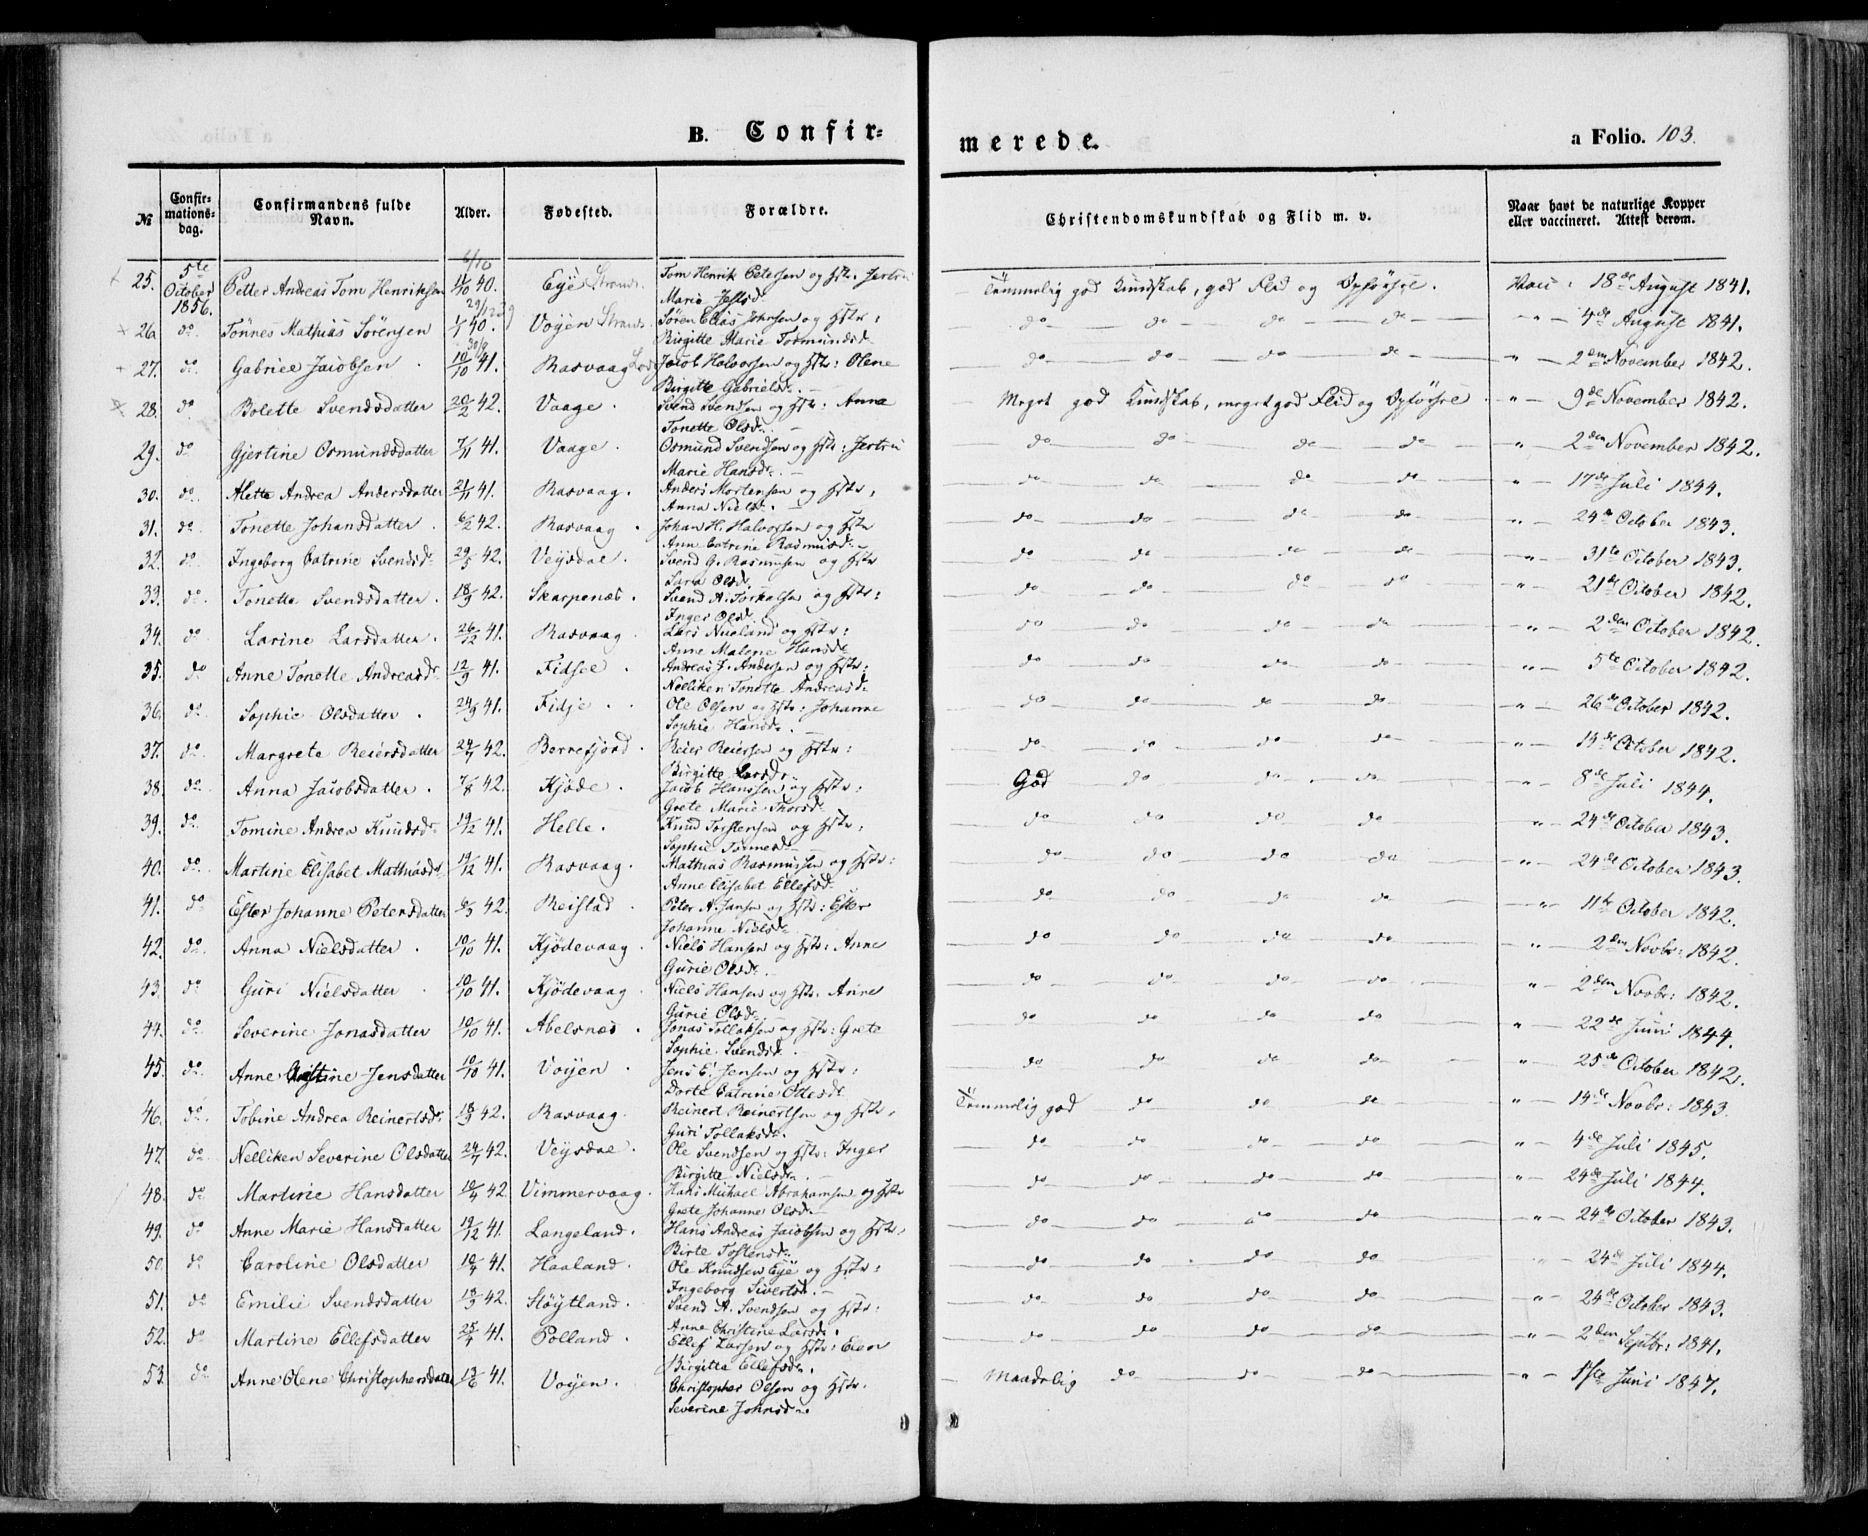 B. Confir-
merede.
a Folio. 103.
№
Confir-
mations-
dag.
Confirmandens fulde
Navn.
Alder.
Fødested.
Forældre.
Christendomskundskab og Flid m. v.
Naar havt de naturlige Kopper
eller vaccineret. Attest derom.
25. 5te October 1856. Petter Andreas Tom Henriksen 11/10 40. Eye Tom Henrik Petersen og Hstr. Jertru Marie Tömmelig god Kundskab, god Flid og Opförsel. Vacc: 18de August 1841.
26 do. Tönnes Mathias Sörensen 1/1 40. Voyen Sören Elias Johnsen og Hstr: Birgitte Marie Tormundsd. do do do do " — 4de August 1841.
27. do. Gabriel Jacobsen 10/10 41. Rasvaag Jacob Halvorsen og Hstr: Olene Birgitte Gabrielsd. do do do do " — 2den November 1842.
28. do Bolette Svendsdatter 20/2 42. Vaage. Svend Svendsen og Hstr: Anna Tonette Olsd. Meget god Kundskab, meget god Flid og Opförsel " — 9de November 1842.
29. do Gjertine Osmundsdatter 7/11 41. Vaage. Osmund Svendsen og Hstr: Jertru Marie Hansd. do do do do " — 2den November 1842.
30. do. Alette Andrea Andersdatter 21/11 41. Rasvaag. Anders Mortensen og Hstr, Anna Nielsd. do do do do " — 17de Juli 1844.
31. do Tonette Johansdatter. 6/2 42. Rasvaag. Johan H. Halvorsen og Hstr Ann Catrine Rasmusd. do do do do " — 24de October 1843.
32. do. Ingeborg Catrine Svendsd. 29/5 42. Veysdal. Svend G. Rasmusen og Hstr Sara Olsd. do do do do " — 31te October 1843.
33. do. Tonette Svendsdatter. 18/9 42. Skarpenes. Svend A. Torkelsen og Hstr: Inger Olsd. do do do do " — 21de October 1842.
34. do Larine Larsdatter. 26/12 41. Rasvaag. Lars Nueland og Hstr: Anne Malene Hansd. do do do do " — 2den October 1842.
35. do Anne Tonette Andreasd. 12/9 41. Fidsel. Andreas J. Andersen og Hstr: Nelliken Tonette Andreasd. do do do do " — 5te October 1842.
36. do. Sophie Olsdatter. 24/9 41. Fidje. Ole Olsen og Hstr: Johanne Sophie Hansd. do do do do " — 26de October 1842.
37. do Margrete Reiersdatter 24/7 42. Borrefjord. Reier Reiersen og Hstr: Birgitte Larsd. do do do do " — 14de October 1842.
38. do. Anna Jacobsdatter. 7/8 42. Kjöde. Jacob Hanssen og Hstr: Grete Marie Thorsd. God do do do " — 8de Juli 1844.
39. do. Tomine Andrea Knudsd. 19/12 41. Helle. Knud Torstensen og Hstr: Sophie Tönnesd. do do do do " — 24de October 1843.
40. do. Martine Elisabet Mathiasd. 14/12 41. Rasvaag. Mathias Rasmussen og Hstr: Anne Elisabet Ellefsd. do do do do " — 24de October 1843.
41. do Ester Johanne Petersdatter 6/3 42. Reistad. Peter A. Jansen og Hstr: Ester Johanne Nielsd. do do do do " — 11te October 1842.
42. do. Anna Nielsdatter. 10/10 41. Kjödevaag. Niels Hansen og Hstr: Anne Gurie Olsd. do do do do " — 2den Novbr: 1842.
43. do Guri Nielsdatter 10/10 41. Kjödevaag Niels Hansen og Hstr: Anne Gurie Olsd. do do do do " — 2den Novbr: 1842.
44. do Severine Jonasdatter 10/10 41. Abelsnes. Jonas Tollaksen og Hstr: Grete Sophie Svendsd. do do do do " — 22de Juni 1844.
45. do. Anne Christine Jensdatter 10/10 41. Voyen. Jens E. Jensen og Hstr: Dorte Catrine Ottesd. do do do do " — 25de October 1842.
46. do Tobine Andrea Reinertsd. 18/3 42. Rasvaag. Reinert Reinertsen og Hstr. Guri Tollaksd. Tömmelig god do do do " — 14de Novbr: 1843.
47. do. Nelliken Severine Olsdatter 24/7 42. Veysdal. Ole Svendsen og Hstr: Inger Birgitte Nielsd. do do do do " — 4de Juli 1845.
48. do Martine Hansdatter 10/4 42 Vimmervaag. Hans Michael Abrahamsen og Hstr Grete Johanne Olsd. do do do do " — 24de Juli 1844.
49. do Anne Marie Hansdatter 19/12 41. Langeland. Hans Andreas Jacobsen og Hstr. Birte Tostensd. do do do do " — 24de October 1843.
50. do Caroline Olsdatter 10/4 41. Haaland. Ole Knudsen Eye og Hstr: Ingeborg Sivertsd. do do do do 24de Juli 1844.
51. do Emilie Svendsdatter 18/3 42. Stöytland. Svend A. Svendsen og Hstr: Anne Christine Larsd. do do do do " — 24de October 1843.
52. do Martine Ellefsdatter 25/4 41. Polland. Ellef Larsen og Hstr: Elen Birgitta Ellefsd. do do do do " — 2den Septbr: 1841.
53. do Anne Olene Christophersdatter 13/6 41. Voyen. Christopher Olsen og Hstr. Severine Johnsd. Maadelig do do do " — 1ste Juni 1847.